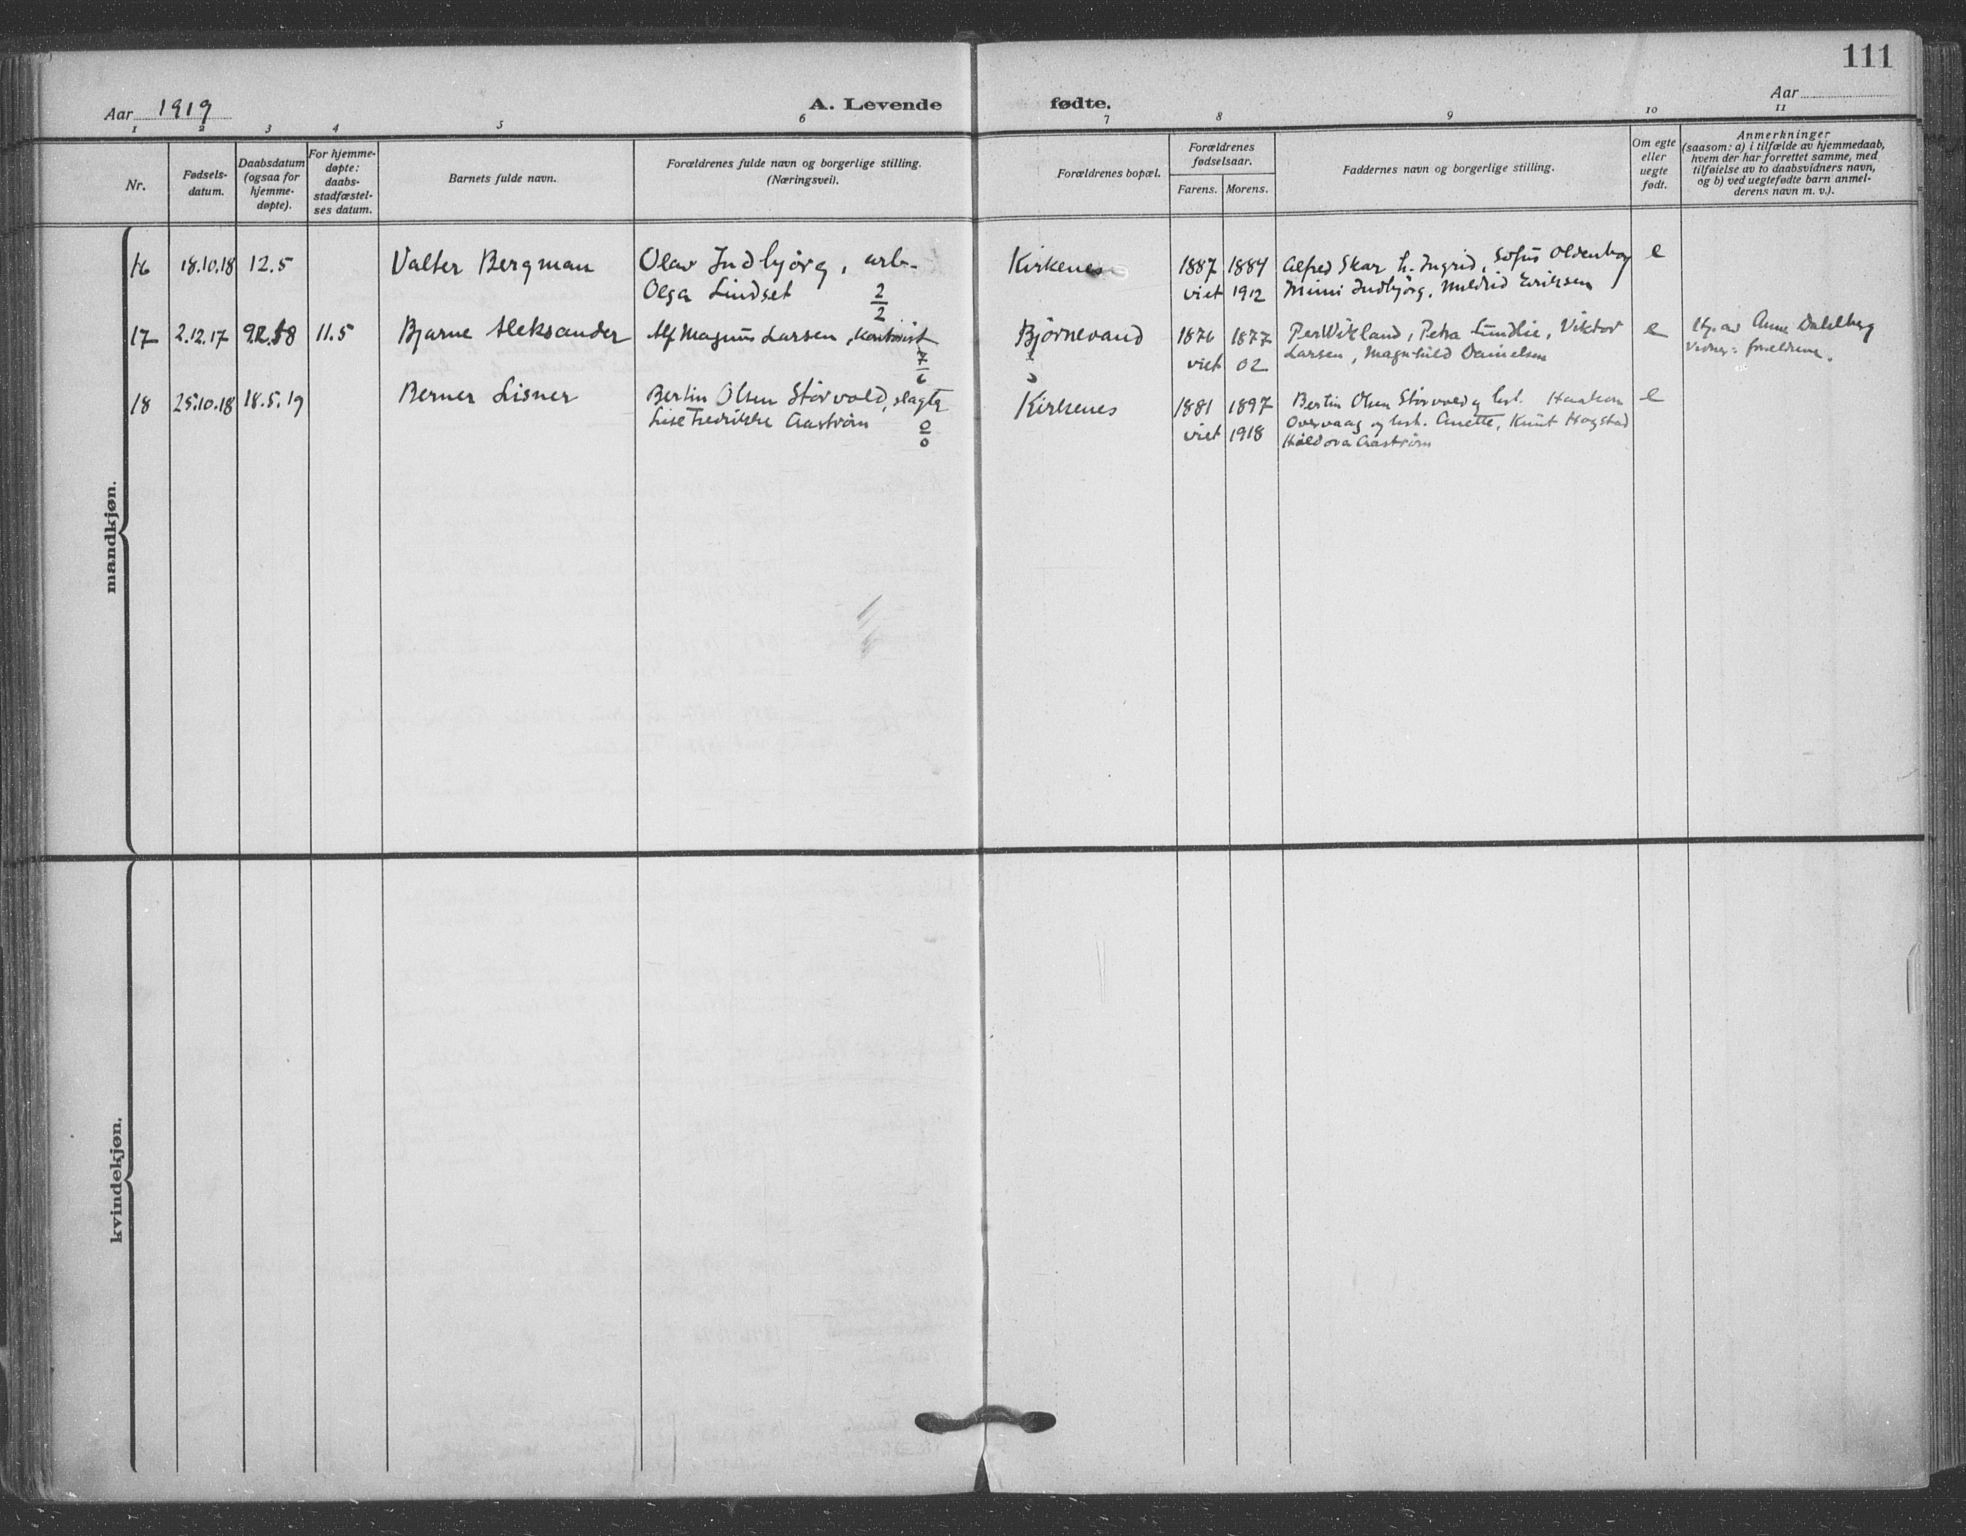 111
Aar 1919
A. Levende fødte.
Aar
1 2 3 4 5 6 7 8 9 10 11
Nr.
Fødsels-
datum.
Daabsdatum
(ogsaa for
hjemme-
døpte).
For hjemme-
døpte:
daabs-
stadfæstel-
ses datum.
Barnets fulde navn.
Forældrenes fulde navn og borgerlige stilling.
(Næringsvei).
Forældrenes bopæl.
Forældrenes
fødselsaar.
Farens. Morens.
Faddernes navn og borgerlige stilling.
Om egte
eller
uegte
født.
Anmerkninger
(saasom: a) i tilfælde av hjemmedaab,
hvem der har forrettet samme, med
tilføielse av to daabsvidners navn,
og b) ved uegtefødte barn anmel-
derens navn m. v.).
mandkjøn.
16 18.10.18 12.5 Valter Bergman Olav Indbjørg, arb. Kirkenes 1887 1884 Alfred Skar h. Ingrid, Sofus Oldenborg e
Olga Lindset 2/2 viet 1912 Mimi Indbjørg, Mildrid Eriksen
17 2.12.17 11.5 Bjarne Aleksander Alf Magnus Larsen, Bjørnevand 1876 1877 Per Wikland, Petra Lundlie, Viktor e Hj. av Anne Dahlberg
7/6 viet 02 Larsen, Magnhild Danielsen Vidner: forældrene.
18 25.10.18 18.5.19 Berner Lisner Bertin Olsen Storvold, slagter Kirkenes 1881 1897 Bertin Olsen Storvold og hst. Haakon e
Lise Fredrikke Aastrøm 0/0 viet 1918 Overvaag og hst. Anette, Knut Hogstad
Aastrøm
kvindekjøn.